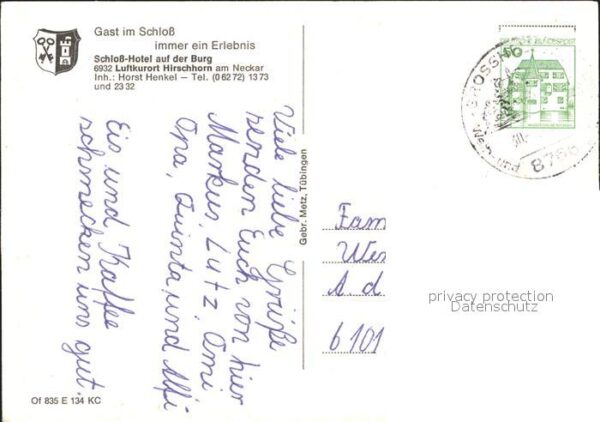 Gast im Schloß
immer ein Erlebnis
Schloß-Hotel auf der Burg
6932 Luftkurort Hirschhorn am Neckar
Inh.: Horst Henkel – Tel. (0 62 72) 13 73
und 23 32
Viele liebe Grüße
senden Euch von hier
Markus, Lutz, Omi
Opa, Quinta und Alfi
Eis und Kaffee
schmecken uns gut.
Gebr. Metz, Tübingen
GROSSHO
8766
Fam
A d
6101
privacy protection
Datenschutz
Of 835 E 134 KC